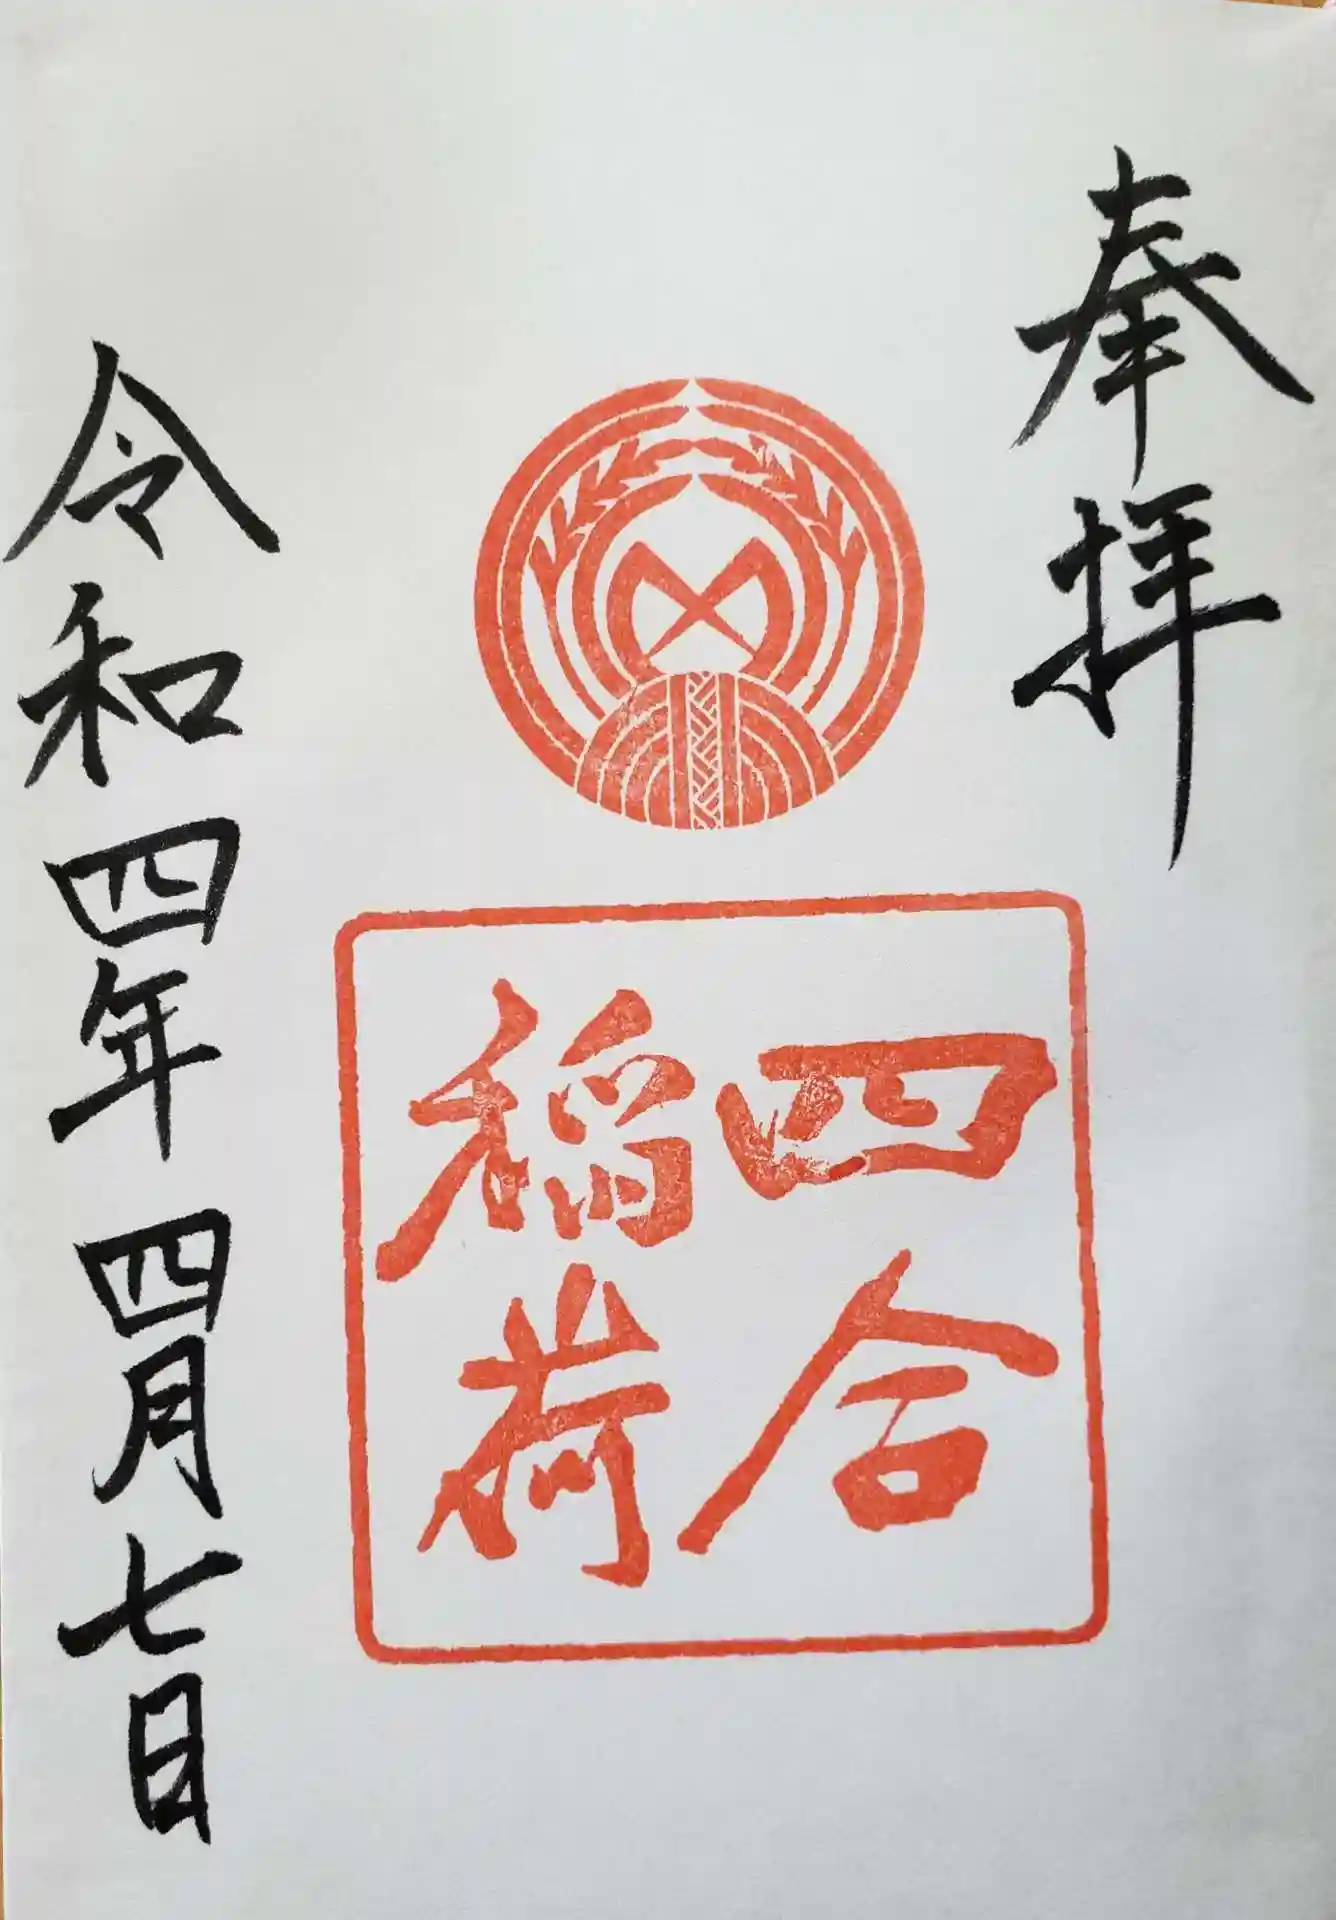 奉拝
四合
稲荷
令和四年四月七日